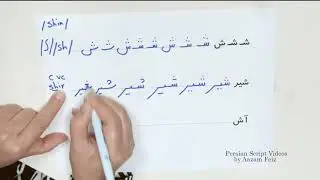 /shin/
ش ش ش ش ش ش ش ش ش /S//sh/
شیر شیر شیر شیر شیر شیر شیر cvc
shir
آش
Persian Script Videos
by Aazam Feiz